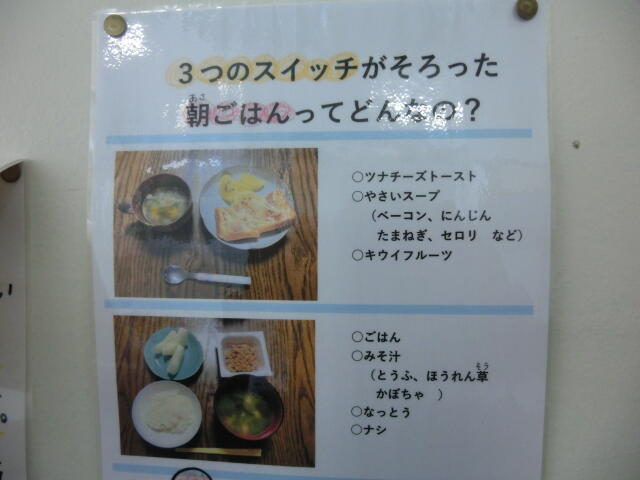 3つのスイッチがそろった
朝ごはんってどんなの？
あさ
○ツナチーズトースト
○やさいスープ
（ベーコン、にんじん
たまねぎ、セロリ　など）
○キウイフルーツ
○ごはん
○みそ汁
（とうふ、ほうれん草
そう
かぼちゃ　）
○なっとう
○ナシ
い